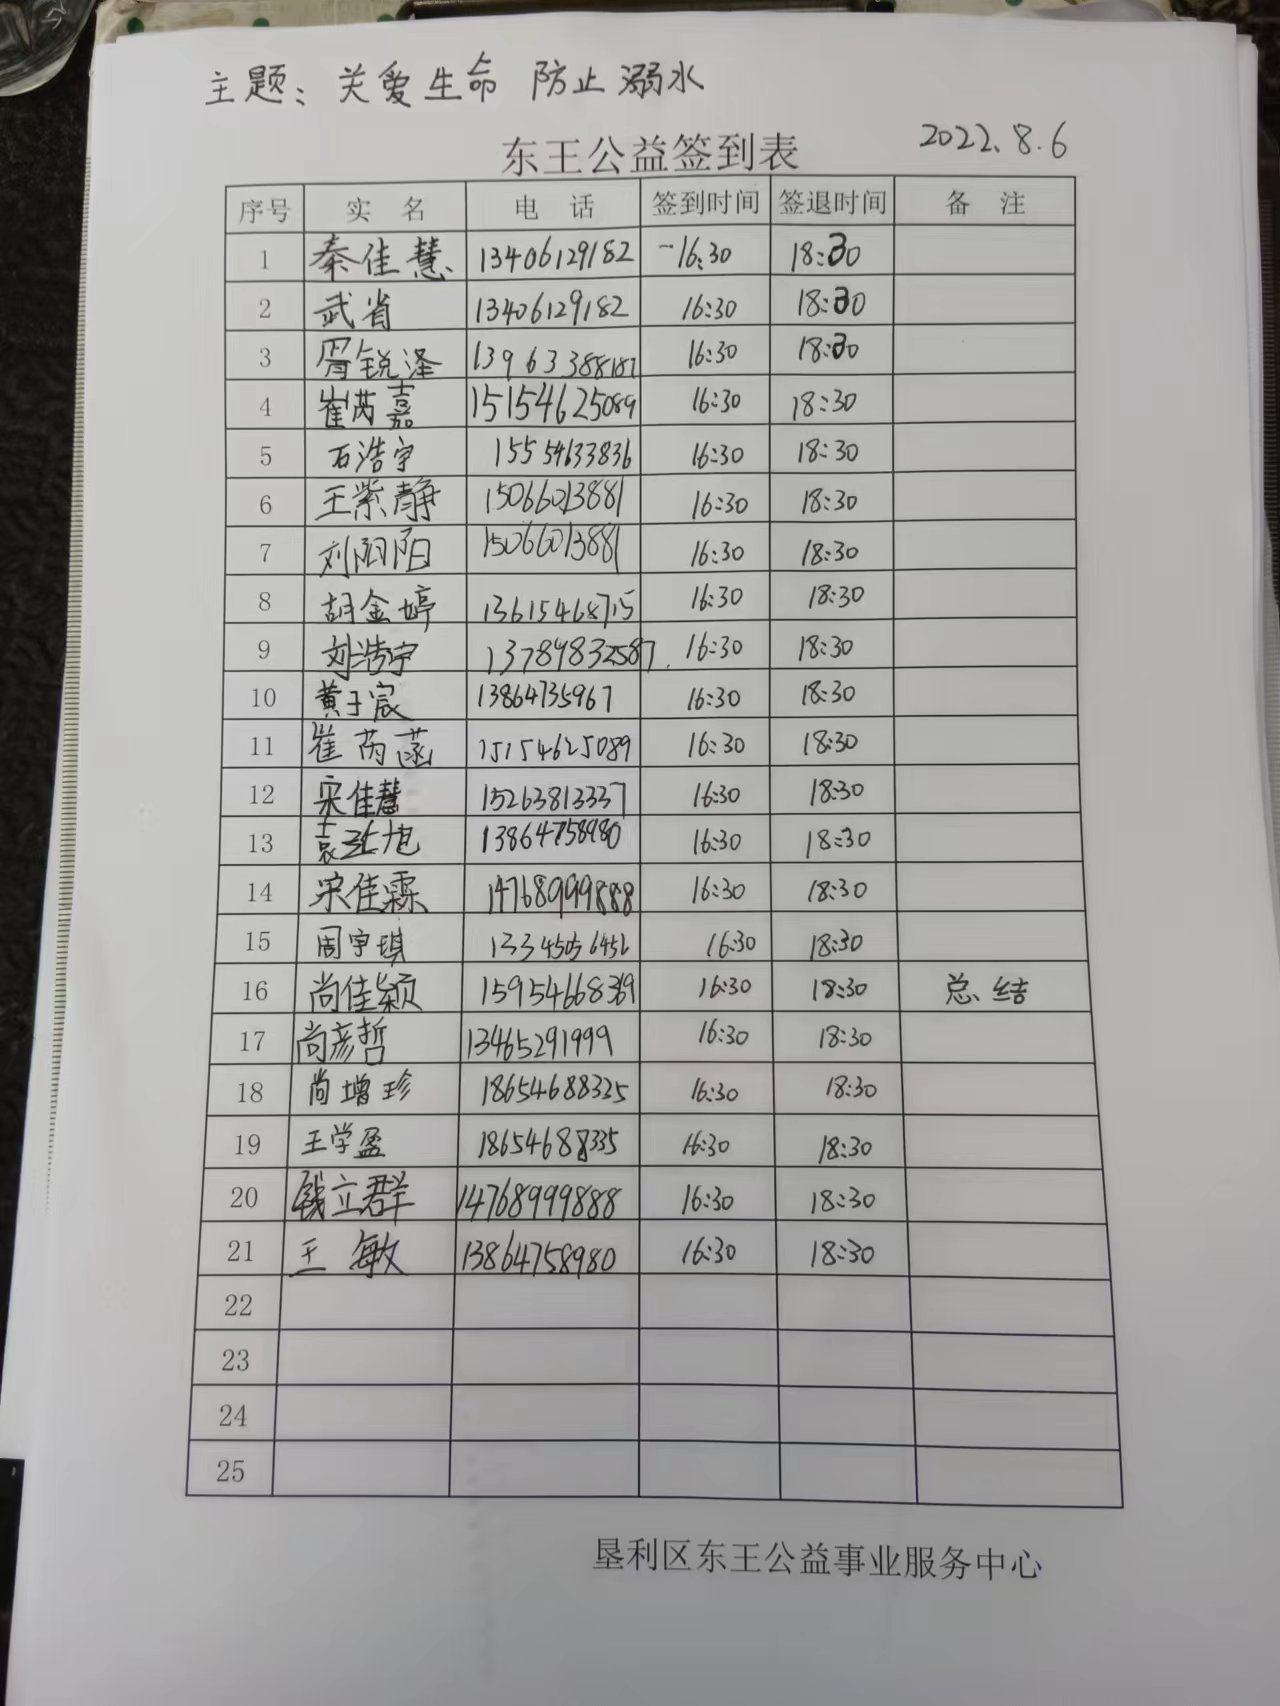 主题：关爱生命 防止溺水
东王公益签到表 2022.8.6
序号 实名 电话 签到时间 签退时间 备注
1 秦佳慧 13406129182 16:30 18:30
2 武省 13406129182 16:30 18:30
3 胥锐泽 13963388187 16:30 18:30
4 崔芮嘉 15154625089 16:30 18:30
5 石浩宇 15554633836 16:30 18:30
6 王紫静 15066013881 16:30 18:30
7 刘阳阳 15066013881 16:30 18:30
8 胡金婷 13615468715 16:30 18:30
9 刘浩宇 13789832587 16:30 18:30
10 黄子宸 13864735967 16:30 18:30
11 崔芮菡 15154625089 16:30 18:30
12 宋佳慧 15263813337 16:30 18:30
13 13864758980 16:30 18:30
14 宋佳霖 14768999888 16:30 18:30
15 周宇琪 16:30 18:30
16 尚佳颖 15954668369 16:30 18:30 总结
17 尚彦哲 13465291999 16:30 18:30
18 尚增珍 18654688335 16:30 18:30
19 王学盈 18654688335 16:30 18:30
20 钱立群 14768999888 16:30 18:30
21 王敏 13864758980 16:30 18:30
22
23
24
25
垦利区东王公益事业服务中心